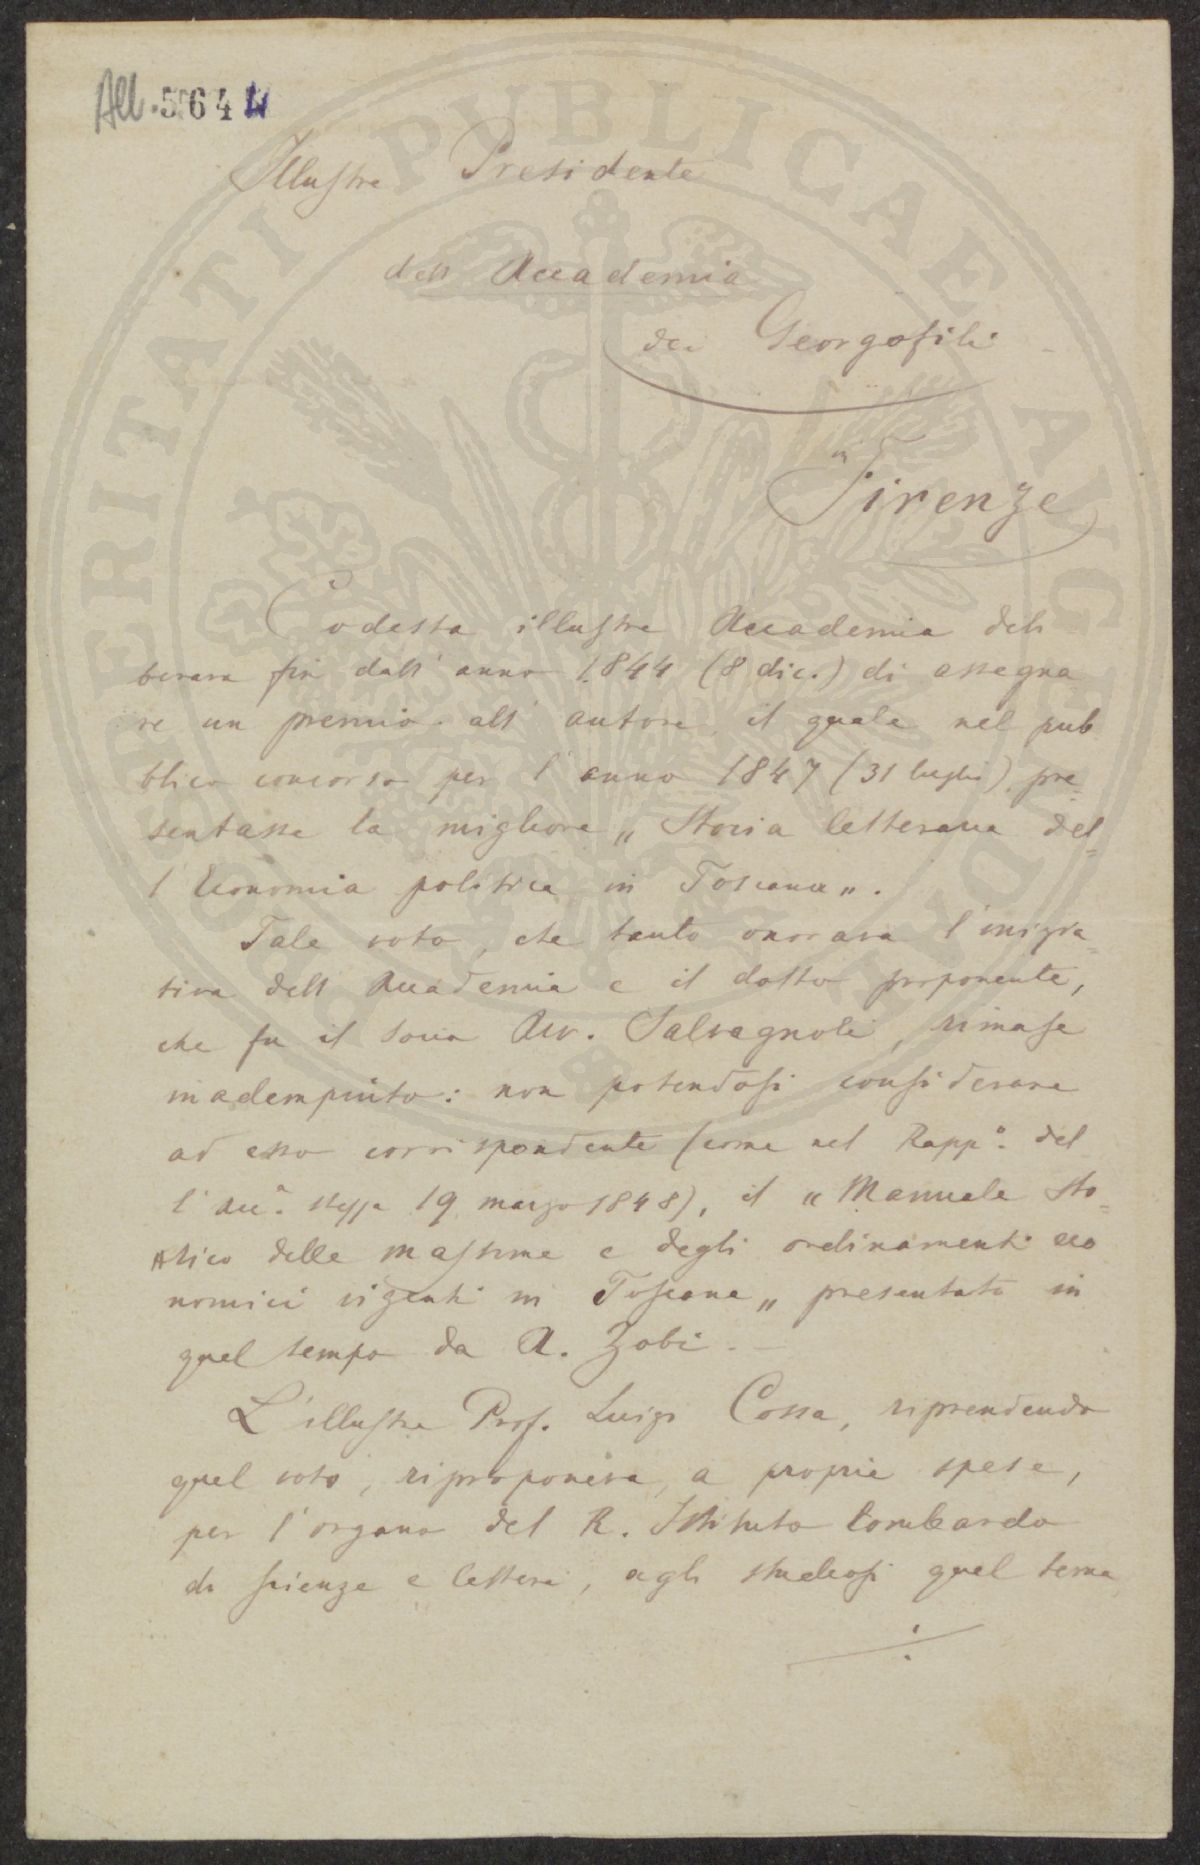 All. 564 4
Illustre Presidente
dell Accademia
dei Georgofili
in
Firenze
Codesta illustre Accademia deli
berava fin dall' anno 1844 (8 dic.) di assegna
re un premio all' autore, il quale nel pub
blico concorso per l' anno 1847 (31 luglio) pre=
sentasse la migliore „ Storia letteraria del=
l' Economia politica in Toscana „.
Tale voto, che tanto onorava l' inizia=
tiva dell Accademia e il dotto proponente,
che fu il socio Avv. Salvagnoli, rimase
inadempiuto: non potendosi considerare
ad esso corrispondente (come nel Rapp.o del
l' Acc.a stessa 19 marzo 1848), il „ Manuale sto=
rico delle massime e degli ordinamenti eco
nomici vigenti in Toscana „ presentato in
quel tempo da A. Zobi. —
L' illustre Prof. Luigi Cossa, riprendendo
quel voto, riproponeva, a proprie spese,
per l' organo del R. Istituto Lombardo
di scienze e lettere, agli studiosi quel tema
PROSPERITATI PUBLICAE AUGENDAE